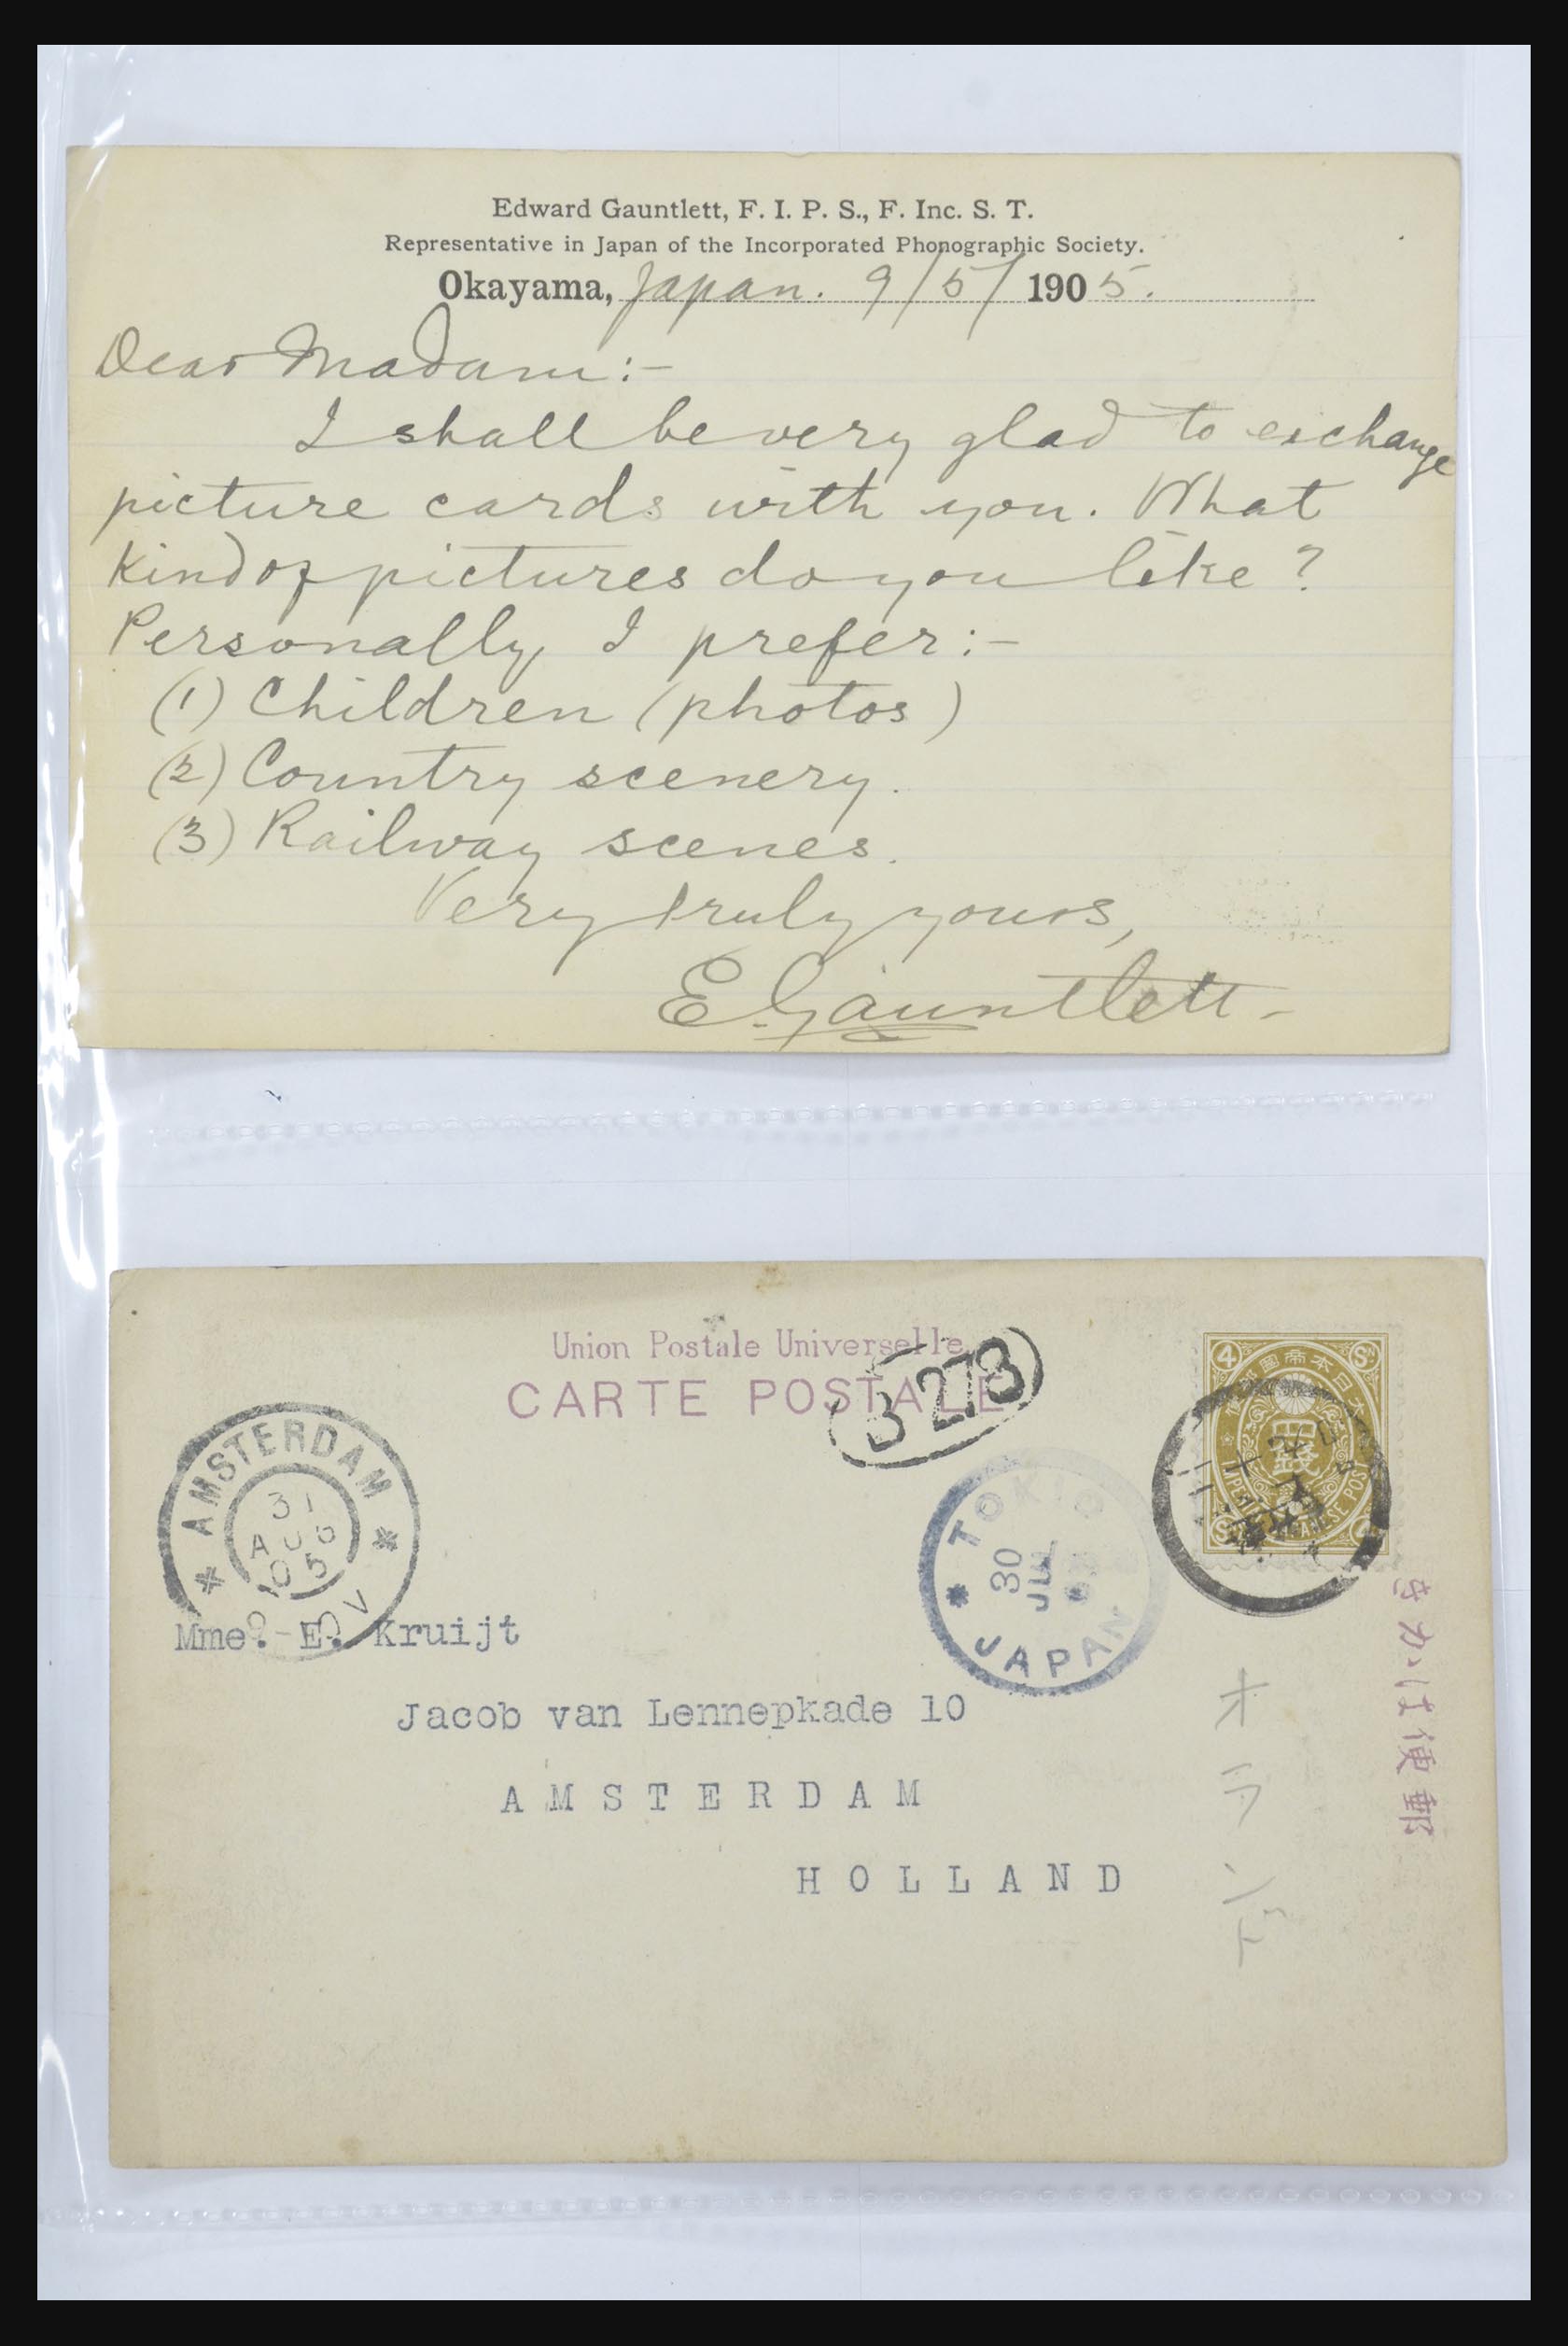 Edward Gauntlett, F. I. P. S., F. Inc. S. T.
Representative in Japan of the Incorporated Phonographic Society.
Okayama, Japan. 9/5/1905.
Dear Madam:-
I shall be very glad to exchange
picture cards with you. What
kind of pictures do you like?
Personally I prefer:-
(1) Children (photos)
(2) Country scenery.
(3) Railway scenes.
Very truly yours,
E. Gauntlett-
Union Postale Universelle
CARTE POSTALE
3 273
AMSTERDAM
31
AUG
05
TOKIO
30
JUL
JAPAN
4 Sn
大日本帝國郵便
銭
IMPERIAL JAPANESE POST
Mme. E. Kruijt
Jacob van Lennepkade 10
AMSTERDAM
HOLLAND
オランド
郵便はかき